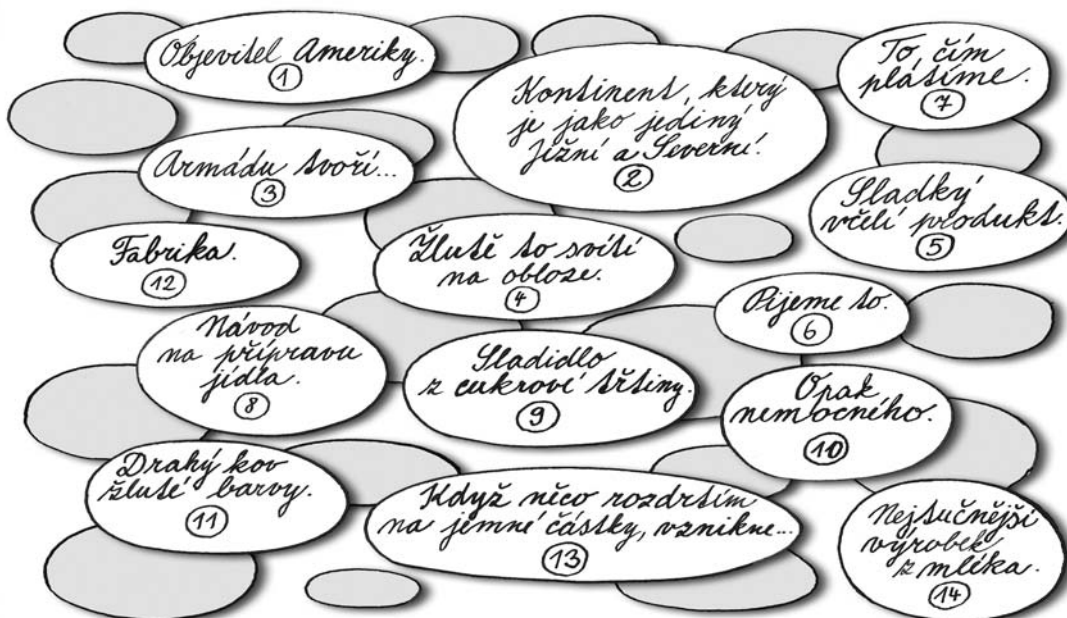 Objevitel Ameriky.
1
Kontinent, který
je jako jediný
Jižní a Severní.
2
To, čím
platíme.
7
Armádu tvoří...
3
Sladký
včelí produkt.
5
Fabrika.
12
Žlutě to svítí
na obloze.
4
Pijeme to.
6
Návod
na přípravu
jídla.
8
Sladidlo
z cukrové třtiny.
9
Opak
nemocného.
10
Drahý kov
žluté barvy.
11
Když něco rozdrtím
na jemné částky, vznikne...
13
Nejtučnější
výrobek
z mléka.
14